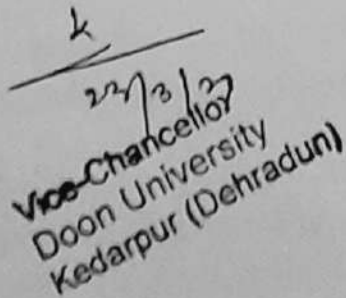 Vice-Chancellor
Doon University
Kedarpur (Dehradun)